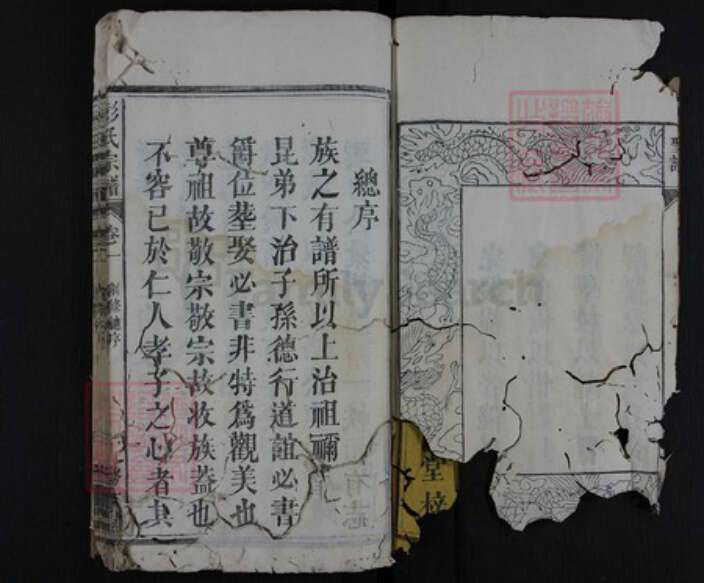 聖諭
總序
族之有譜所以上治祖禰
昆弟下治子孫德行道誼必書
爵位塟娶必書非特爲觀美也
尊祖故敬宗敬宗故收族葢也
不容已於仁人孝子之心者其
彭氏宗譜
卷一
總序
堂梓
FamilySearch